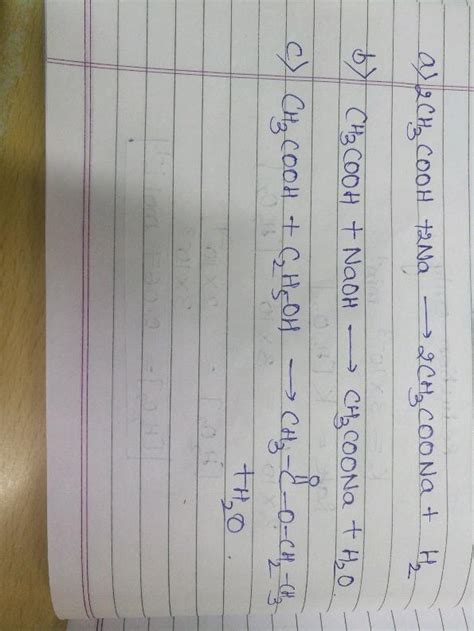 a) 2CH₃COOH + 2Na → 2CH₃COONa + H₂
b) CH₃COOH + NaOH → CH₃COONa + H₂O
c) CH₃COOH + C₂H₅OH → CH₃-C-O-CH₂-CH₃
O
+ H₂O